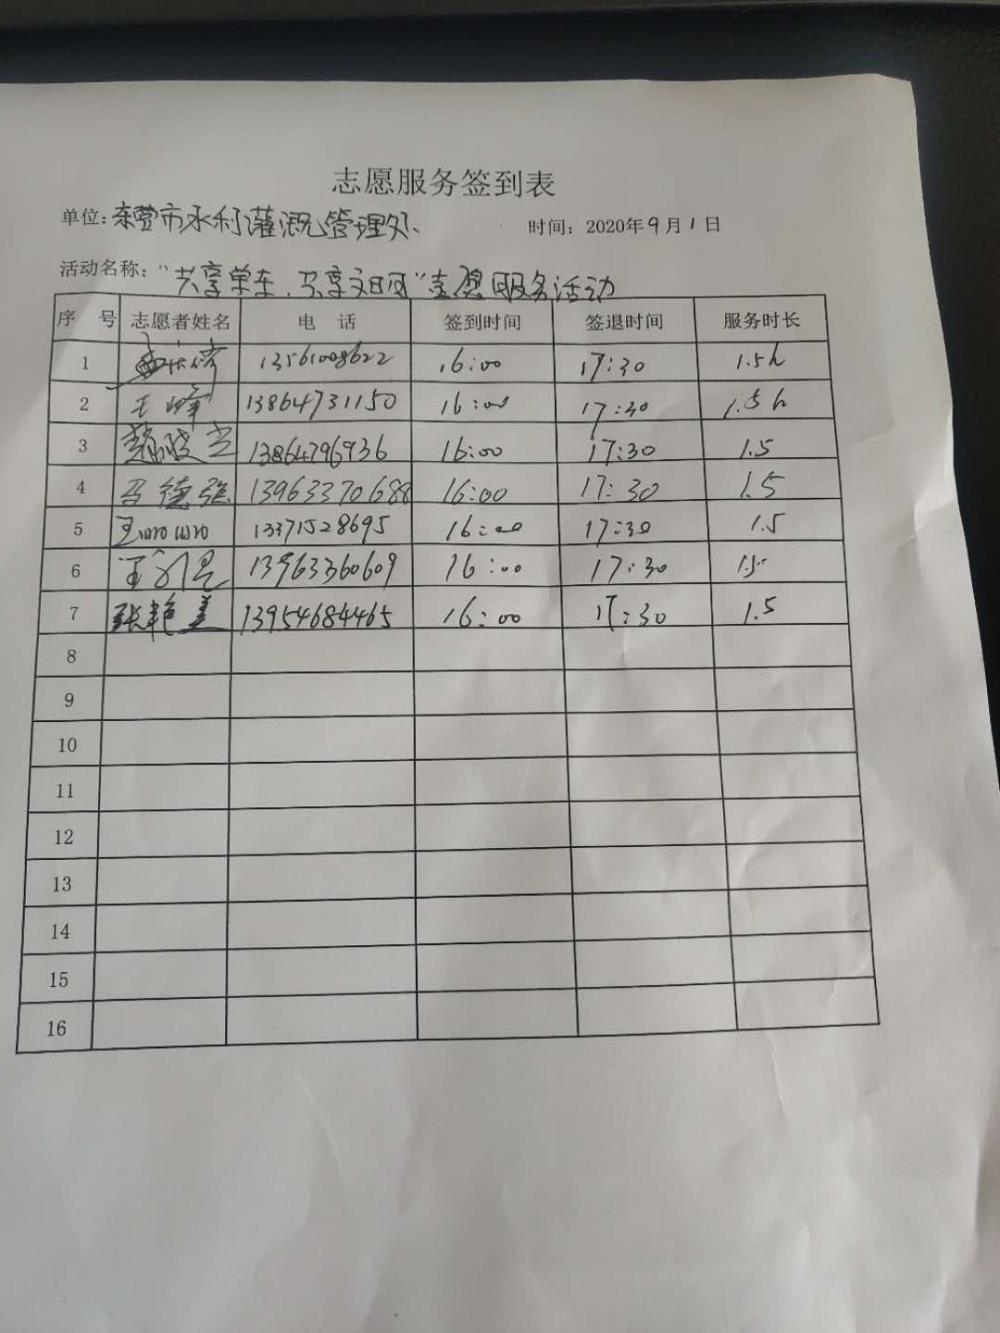 志愿服务签到表
单位：东营市水利灌溉管理处
时间：2020年9月1日
活动名称："共享单车，共享文明"志愿服务活动
序号 志愿者姓名 电话 签到时间 签退时间 服务时长
1 13561008622 16:00 17:30 1.5h
2 王峰 13864731150 16:00 17:30 1.5h
3 13864796936 16:00 17:30 1.5
4 德强 13963370688 16:00 17:30 1.5
5 王 13371528695 16:00 17:30 1.5
6 王 13963360609 16:00 17:30 1.5
7 张艳美 13954684465 16:00 17:30 1.5
8
9
10
11
12
13
14
15
16